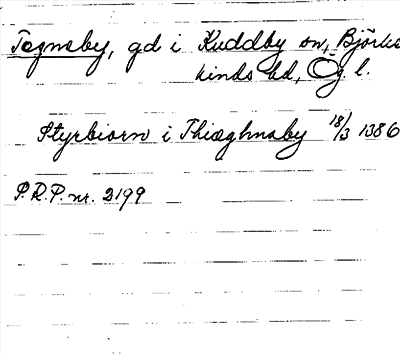 Tegneby, gd i Kuddby sn, Björke
kinds hd, Ög l.
Styrbiorn i Thiæghnaby 18/3 1386
P.R.P. nr. 2199